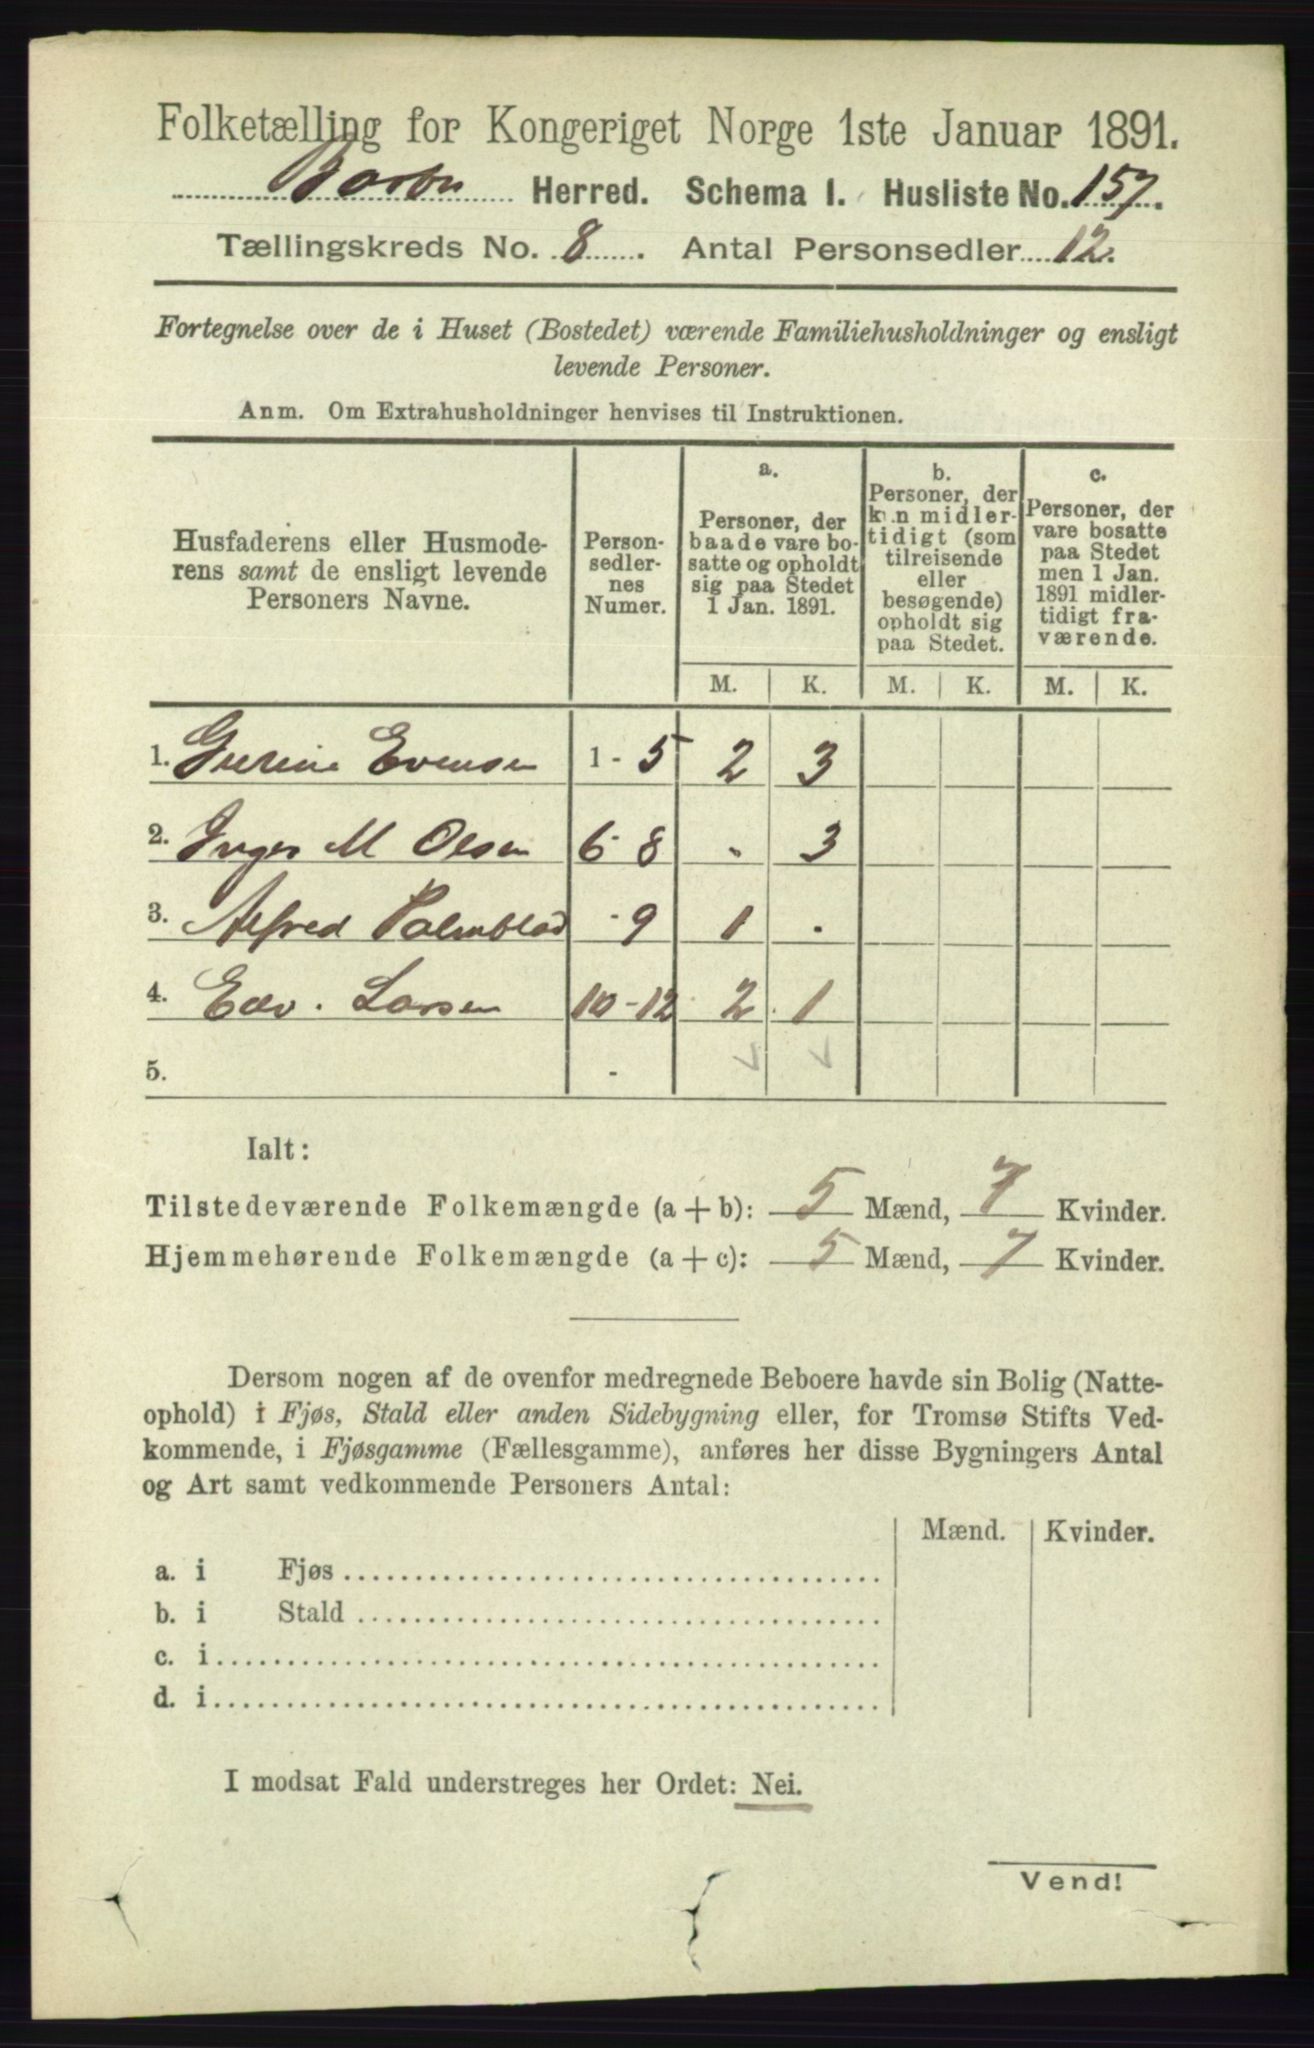 Folketælling for Kongeriget Norge 1ste Januar 1891.
Barbu Herred. Schema I. Husliste No. 157.
Tællingskreds No. 8. Antal Personsedler 12.
Fortegnelse over de i Huset (Bostedet) værende Familiehusholdninger og ensligt
levende Personer.
Anm. Om Extrahusholdninger henvises til Instruktionen.
Husfaderens eller Husmode-
rens samt de ensligt levende
Personers Navne.
Person-
sedler-
nes
Numer.
a.
Personer, der
baade vare bo-
satte og opholdt
sig paa Stedet
1 Jan. 1891.
b.
Personer, der
kun midler-
tidigt (som
tilreisende
eller
besøgende)
opholdt sig
paa Stedet.
c.
Personer, der
vare bosatte
paa Stedet
men 1 Jan.
1891 midler-
tidigt fra-
værende.
M. K. M. K. M. K.
1. Gurine Evensen 1 - 5 2 3
2. Inger M Olsen 6 - 8 - 3
3. Alfred Palmblad - 9 1 .
4. Edv. Larsen 10 - 12 2 1
5. -
Ialt:
Tilstedeværende Folkemængde (a + b): 5 Mænd, 7 Kvinder.
Hjemmehørende Folkemængde (a + c): 5 Mænd, 7 Kvinder.
Dersom nogen af de ovenfor medregnede Beboere havde sin Bolig (Natte-
ophold) i Fjøs, Stald eller anden Sidebygning eller, for Tromsø Stifts Ved-
kommende, i Fjøsgamme (Fællesgamme), anføres her disse Bygningers Antal
og Art samt vedkommende Personers Antal:
Mænd. Kvinder.
a. i Fjøs
b. i Stald
c. i
d. i
I modsat Fald understreges her Ordet: Nei.
Vend!